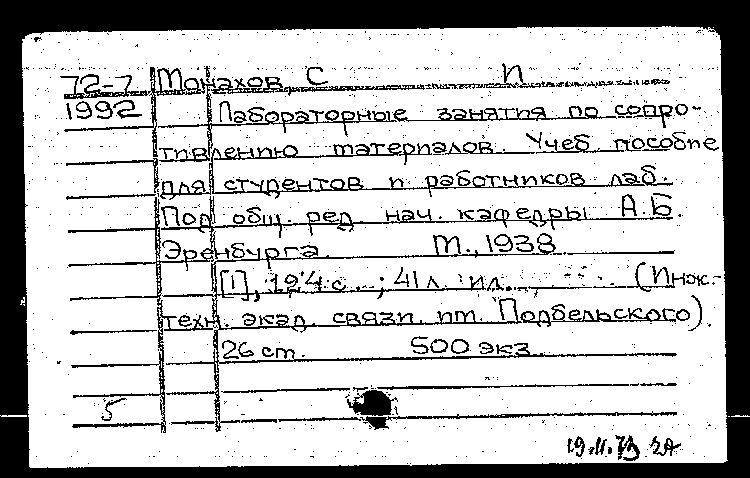 72-7 Монахов, С И
1992 Лабораторные занятия по сопро-
тивлению материалов. Учеб пособие
для студентов и работников лаб.
Под общ. ред. нач. кафедры А.Б.
Эренбурга. М., 1938
[1], 124 с. ; 41 л. ил. (Инж.-
техн. акад. связи. им. Подбельского).
26 см. 500 экз.
5
19.11.73